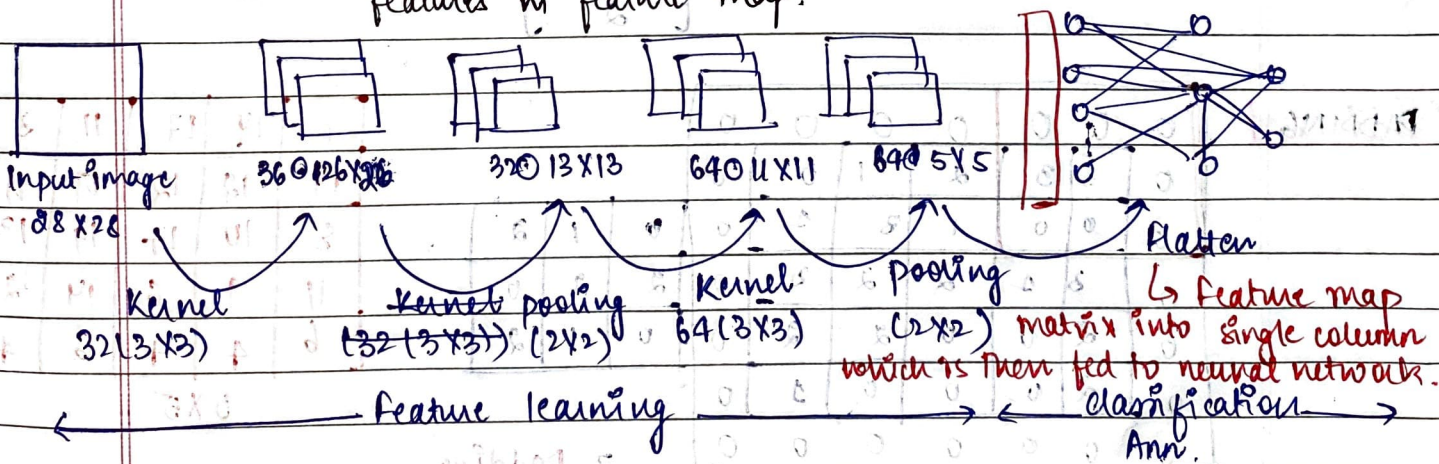 features in feature map.
Input image
28 X 28
36@126X26
32@ 13X13
64@ 11X11
64@ 5X5
Flatten
Kernel
32(3X3)
Kernel pooling
(32(3X3)) (2X2)
Kernel
64(3X3)
pooling
(2X2)
↳ feature map
matrix into single column
which is then fed to neural network.
← feature learning →
← classification →
Ann.